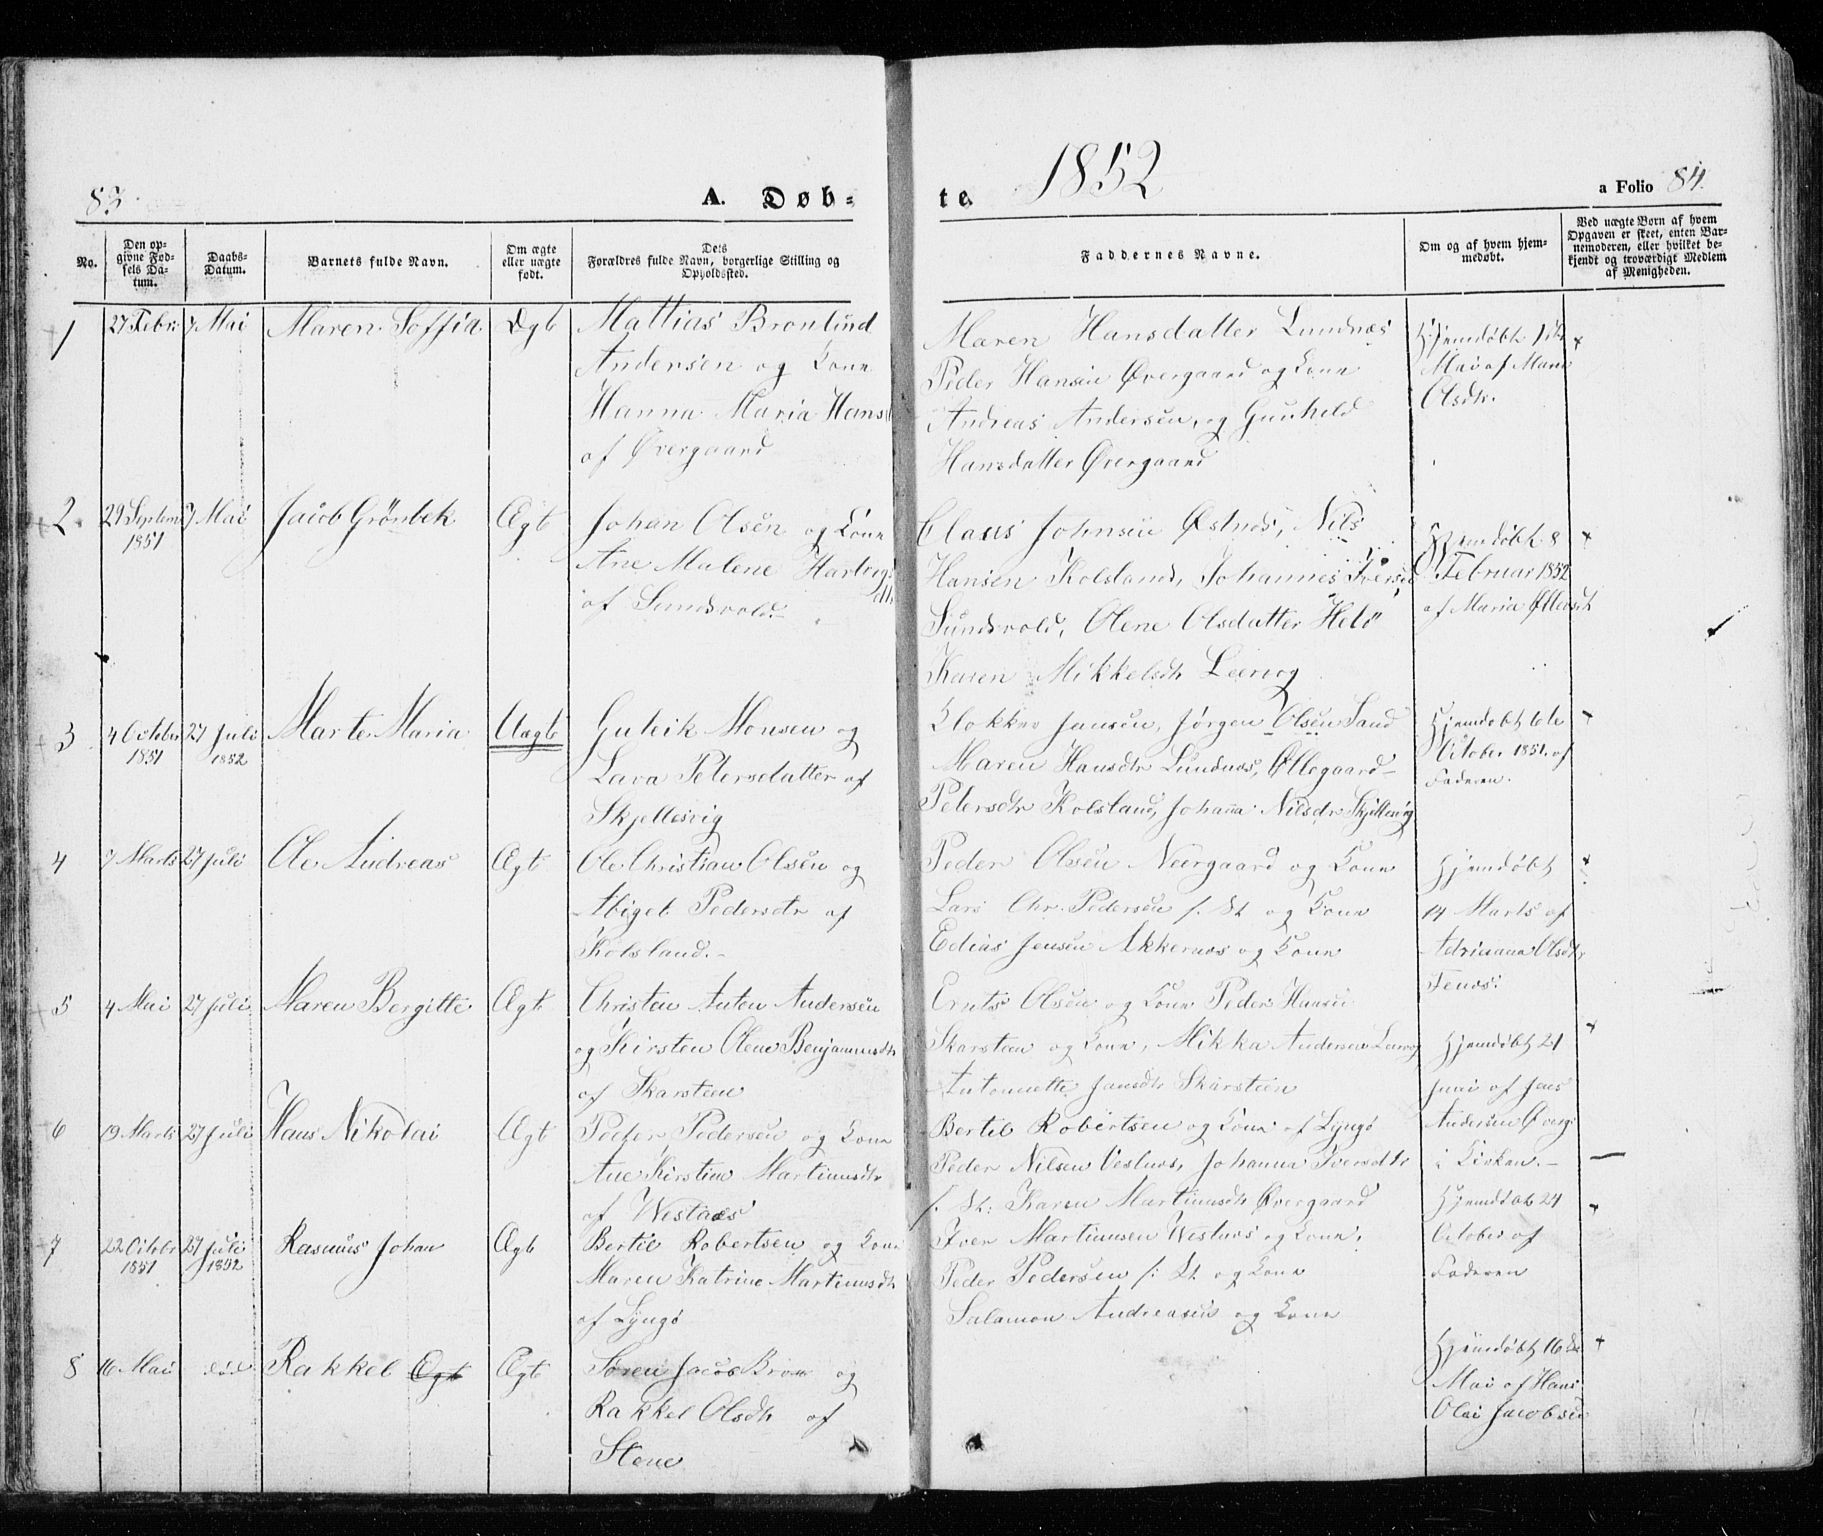 83.
A. Døb-
te.
1852
a Folio 84.
No.
Den op-
givne Fød-
sels Da-
tum.
Daabs-
Datum.
Barnets fulde Navn.
Om ægte
eller uægte
født.
Dets
Forældres fulde Navn, borgerlige Stilling og
Opholdssted.
Faddernes Navne.
Om og af hvem hjem-
medøbt.
Ved uægte Børn af hvem
Opgaven er skeet, enten Bar-
nemoderen, eller hvilket be-
kjendt og troværdigt Medlem
af Menigheden.
1
27 Febr.
7 Mai
Maren Soffia
Ægt
Mattias Bronlund
Andersen og Kone
Hanna Maria Hans
af Øvergaard
Maren Hansdatter Lundnæs
Peder Hansen Øvergaard og Kone
Andreas Andersen, og Gunhild
Hansdatter Øvergaard
Hjemdøbt 1ste
Mai af Maren
Olsdtr.
2
29 Septem
1851
7 Mai
Jacob Grönbek
Ægt
Johan Olsen og Kone
Ane Malene Hartvigs
dtr
af Sundsvold
Claus Johnsen Østnes, Nils
Hansen Kolsland, Johannes Iversen
Sundsvold, Olene Olsdatter Helö
Karen Mikkelsdtr Leervog
Hjemdøbt 8
Februar 1852
af Maria Ølleosdt
3
4 October
1851
27 Juli
1852
Marte Maria
Uægt
Guleik Monsen og
Lava Petersdatter af
Skjellesvig
Klokker Jansen, Jørgen Olsen Sand
Maren Hansdtr Lundnæs, Øllegaard
Petersdtr Kolsland, Johanna Nilsdr Skjellesvig
Hjemdøbt 6te
October 1851 af
Faderen.
4
7 Marts
27 Juli
Ole Andreas
Ægt
Ole Christian Olsen og
Abigel Pedersdtr af
Kolsland.
Peder Olsen Neergaard og Kone
Lars Chr. Pedersen s. St og Kone
Edias Jensen Akkernes og Kone
Hjemdøbt
14 Marts af
Adriana Olsdtr
Tenes.
5
4 Mai
27 Juli
Maren Bergitte
Ægt
Christen Anton Andersen
og Kirsten Olene Benjaminsdtr
af Skarsteen
Ernts Olsen og Kone Peder Hansen
Skarsteen og Kone, Mikka Andersen Leervog
Antonette Jansdtr Skarsteen
Hjemdøbt 21
Juni af Jens
Andersen Øverg.
i Kirken.
6
19 Marts
27 Juli
Hans Nikolai
Ægt
Peder Pedersen og Kone
Ane Kirstine Martinusdtr
af Westnes
Bertil Robertsen og Kone af Lyngö
Peder Nilsen Vestnes, Johanna Iversdtr
s. St: Karen Martinusdtr Øvergaard
7
22 Octobr
1851
27 Juli
1852
Rasmus Johan
Ægt
Bertil Robertsen og Kone
Maren Katrine Martinusdtr
af Lyngö
Iver Martinusen Westnes og Kone,
Peder Pedersen s: St og Kone
Salamon Andreasen og Kone
Hjemdøbt 24
October af
Faderen
8
16 Mai
død
Rakkel Ægt
Ægt
Søren Jacob Brox og
Rakkel Olsdtr af
Stene
Hjemdøbt 16de
Mai af Hans
Olai Jacobsen